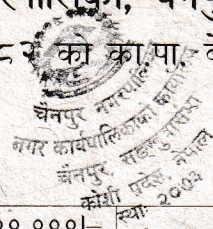 ८२ को का.पा.
चैनपुर नगरपालिका
नगर कार्यपालिकाको कार्यालय
चैनपुर, सङ्खुवासभा
कोशी प्रदेश, नेपाल
स्था: २०७३
००,०००।–